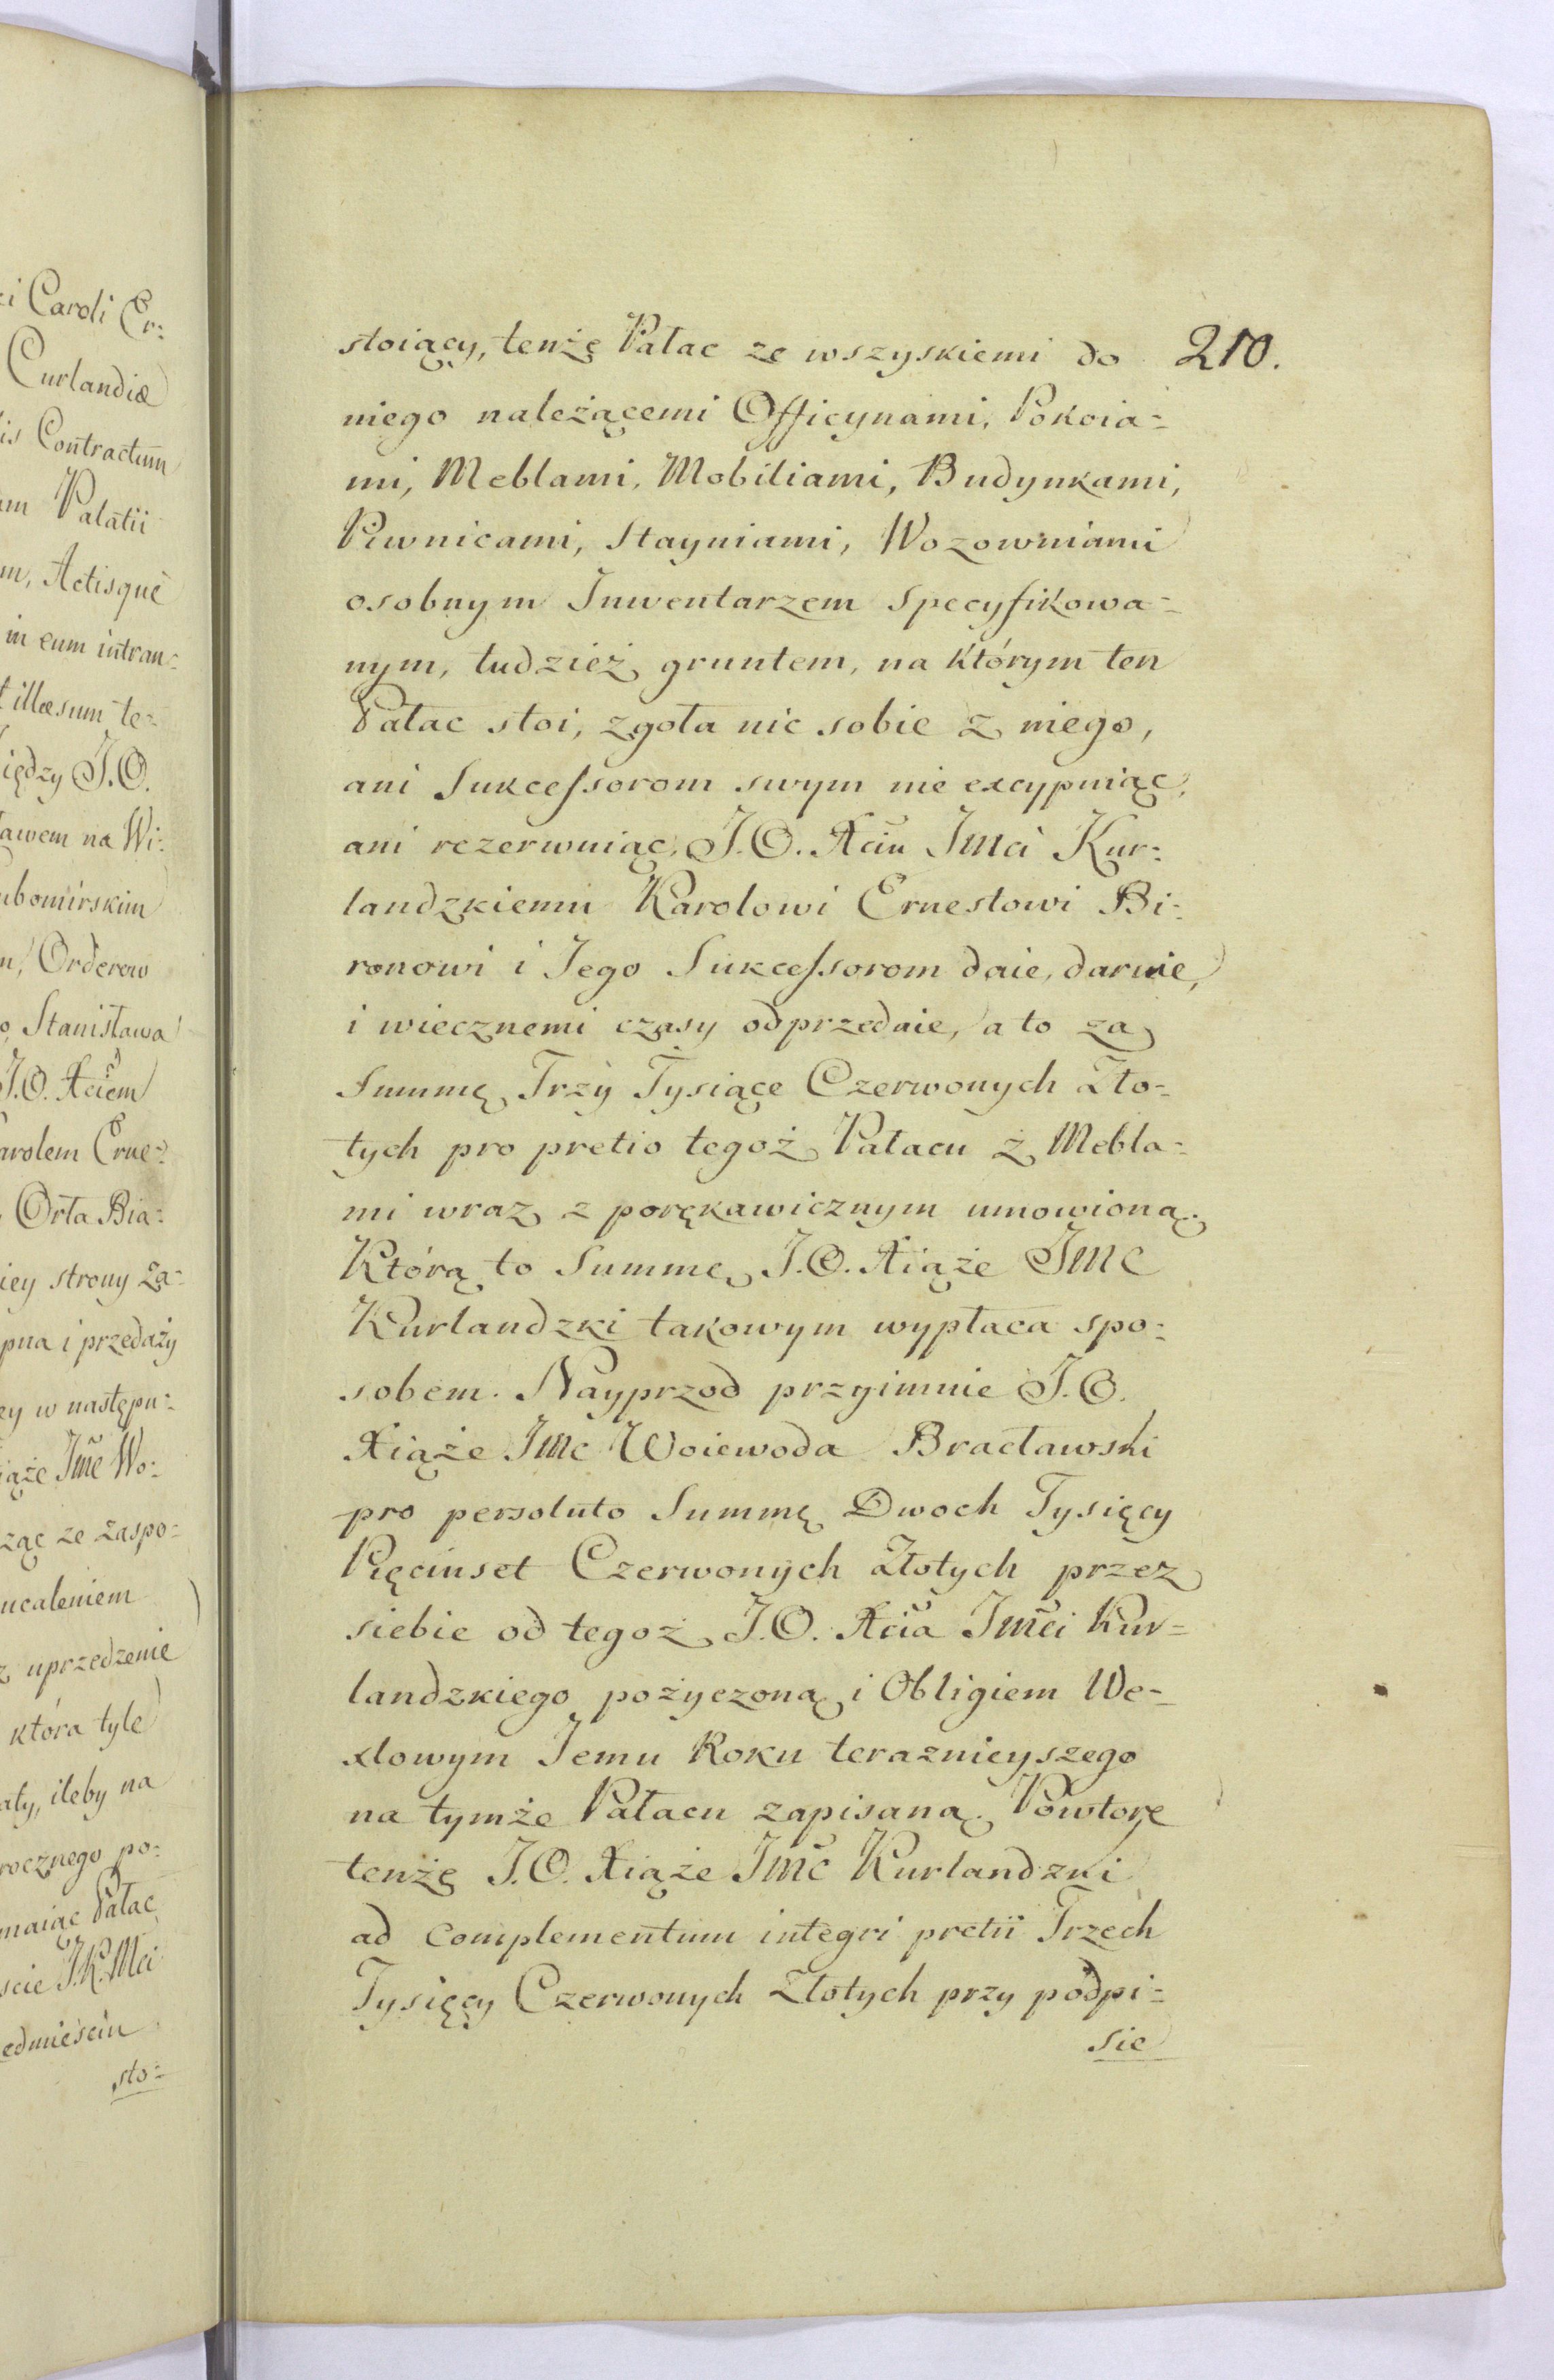 i Caroli Er:
Curlandiæ
is Contractum
um Palatii
m, Actisquè
in eum intran:
illæsum te:
iędzy J.O.
ławem na Wi:
ubomirskim
Orderow
o, Stanisława
J.O. Xciem
arolem Erne:
Orła Bia:
iey strony za:
pna i przedaży
ey w następu:
iąże Jmć Wo:
ząc ze zaspo:
ucaleniem
z uprzedzenie
która tyle
ały, ileby na
rocznego po:
maiąc Pałac
ście J.K.Mci
edmieściu
sto:
stoiący, tenżę Pałac ze wszyskiemi do 210.
niego należącemi Officynami, Pokoia:
mi, Meblami, Mobiliami, Budynkami,
Piwnicami, Stayniami, Wozowniami
osobnym Inwentarzem Specyfikowa:
nym, tudzież gruntem, na którym ten
Pałac stoi, zgoła nic sobie z niego,
ani Sukcessorom swym nie excypuiąc,
ani rezerwuiąc, J.O. Xciu Jmci Kur:
landzkiemu Karolowi Ernestowi Bi:
ronowi i Jego Sukcessorom daie, daruie,
i wiecznemi czasy odprzedaie, a to za
Summę Trzy Tysiące Czerwonych Zło:
tych pro pretio tegoż Pałacu z Mebla:
mi wraz z porękawicznym umowioną.
Którą to Summę J.O. Xiąże Jmć
Kurlandzki takowym wypłaca spo:
sobem. Nayprzod przyimuie J.O.
Xiąże Jmć Woiewoda Bracławski
pro persoluto Summę Dwoch Tysięcy
Pięciuset Czerwonych Złotych przez
siebie od tegoż J.O. Xcia Jmći Kur=
landzkiego pożyczoną i Obligiem We=
xlowym Jemu Roku teraznieyszego
na tymże Pałacu zapisaną. Powtore
tenżę J.O. Xiąże Jmć Kurlandzki
ad complementum integri pretii Trzech
Tysięcy Czerwonych Złotych przy podpi:
sie